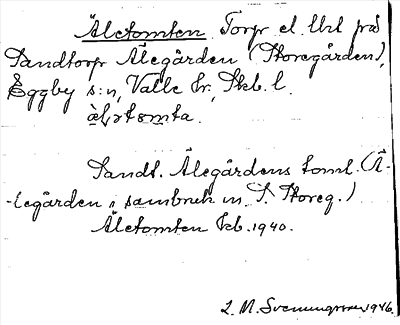 Äletomten Torp el. lht på
Sandtorp Älegården (Storegården),
Eggby s:n, Valle hr, Skb. l.
Sandt. Älegårdens toml. (Ä-
-legården i sambruk m. S. Storeg.)
Äletomten kb. 1940.
L. M. Svenungsson 1946.